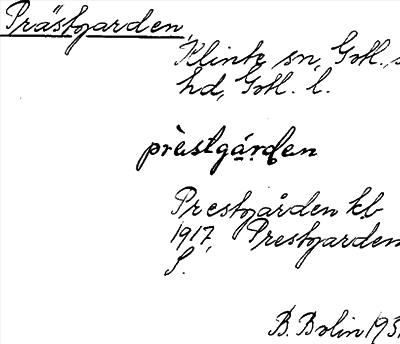 Prästgarden,
Klinte sn, Gotl., s
hd, Gotl. l.
prèstgárden
Prestgården kb
1917, Prestgarden
S.
B. Bolin 193